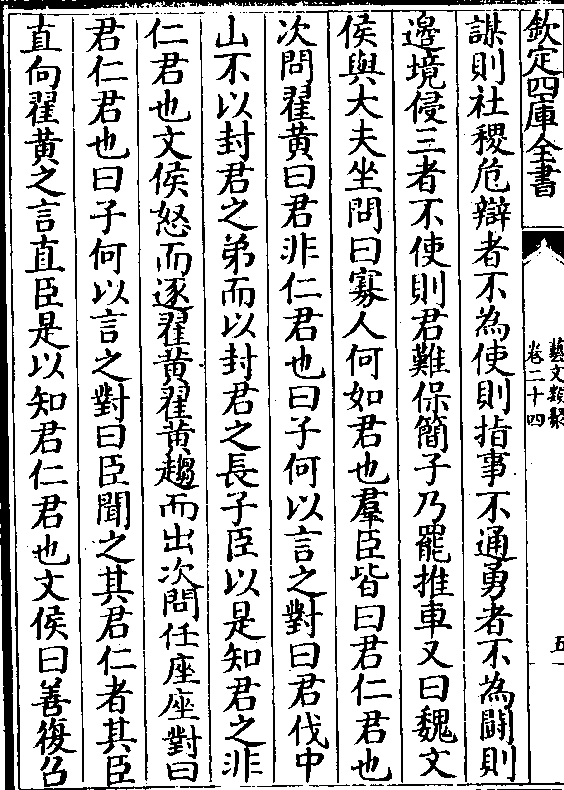 欽定四庫全書
藝文類聚
卷二十四
五
謀則社稷危辯者不為使則指事不通勇者不為鬭則
邊境侵三者不使則君難保簡子乃罷推車又曰魏文
侯與大夫坐問曰寡人何如君也羣臣皆曰君仁君也
次問翟黃曰君非仁君也曰子何以言之對曰君伐中
山不以封君之弟而以封君之長子臣以是知君之非
仁君也文侯怒而逐翟黃翟黃趨而出次問任座座對曰
君仁君也曰子何以言之對曰臣聞之其君仁者其臣
直向翟黃之言直臣是以知君仁君也文侯曰善復召